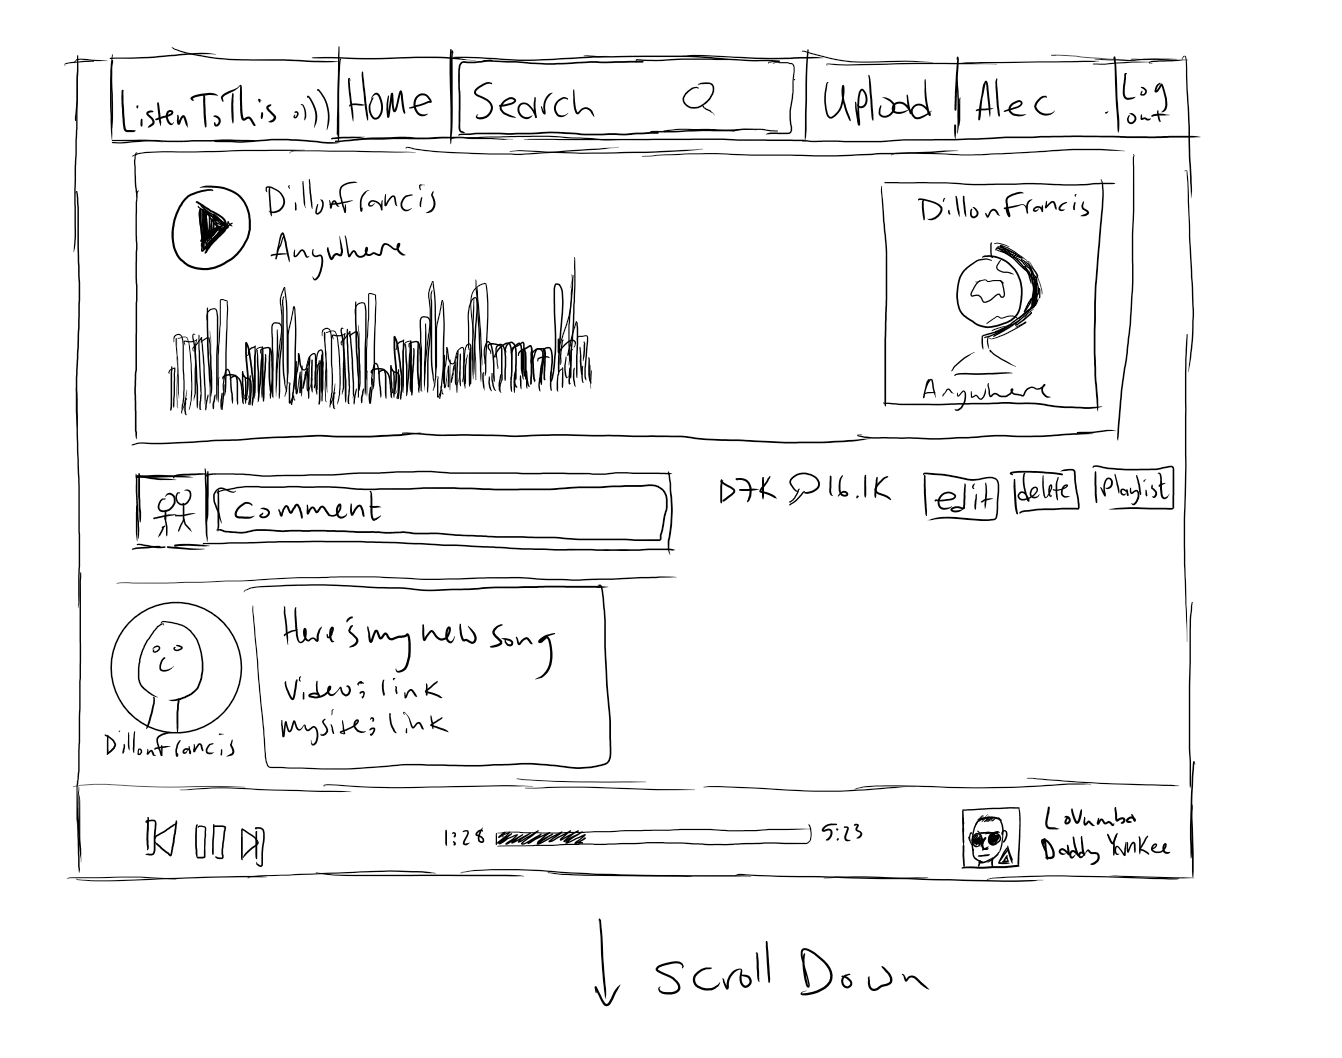 ListenToThis
Home
Search
Upload
Alec
Log
out
Dillonfrancis
Anywhere
DillonFrancis
Anywhere
comment
7K
16.1K
edit
delete
Playlist
Here's my new song
Video: link
mysite: link
Dillonfrancis
1:28
5:23
Lovumba
Daddy Yankee
Scroll Down